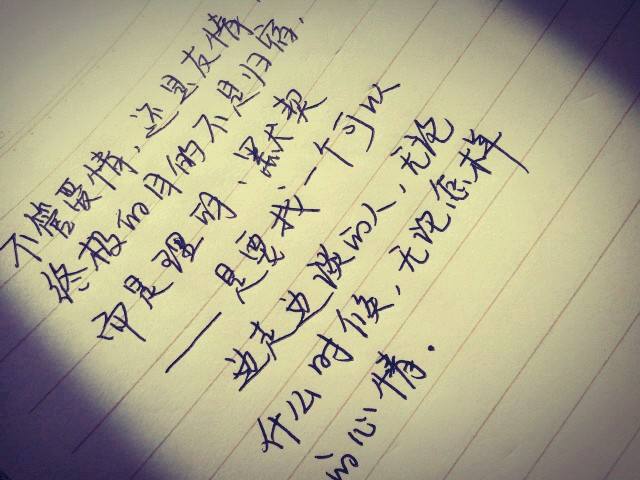 不管爱情,还是友情,
终极的目的不是归宿,
而是理解、默契
——是要找一个可以
边走边谈的人,无论
什么时候,无论怎样
的心情.